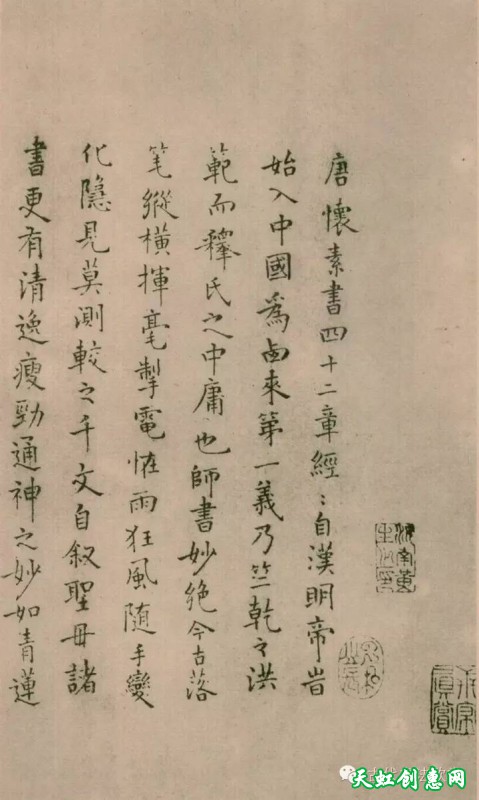 唐懷素書四十二章經〻自漢明帝旹
始入中國爲卥來第一義乃竺乾之洪
範而釋氏之中庸也師書妙绝今古落
笔縱橫揮毫掣電恠雨狂風随手變
化隱見莫測較之千文自叙聖母諸
書更有清逸瘦勁通神之妙如青蓮
真賞
天虹创惠网